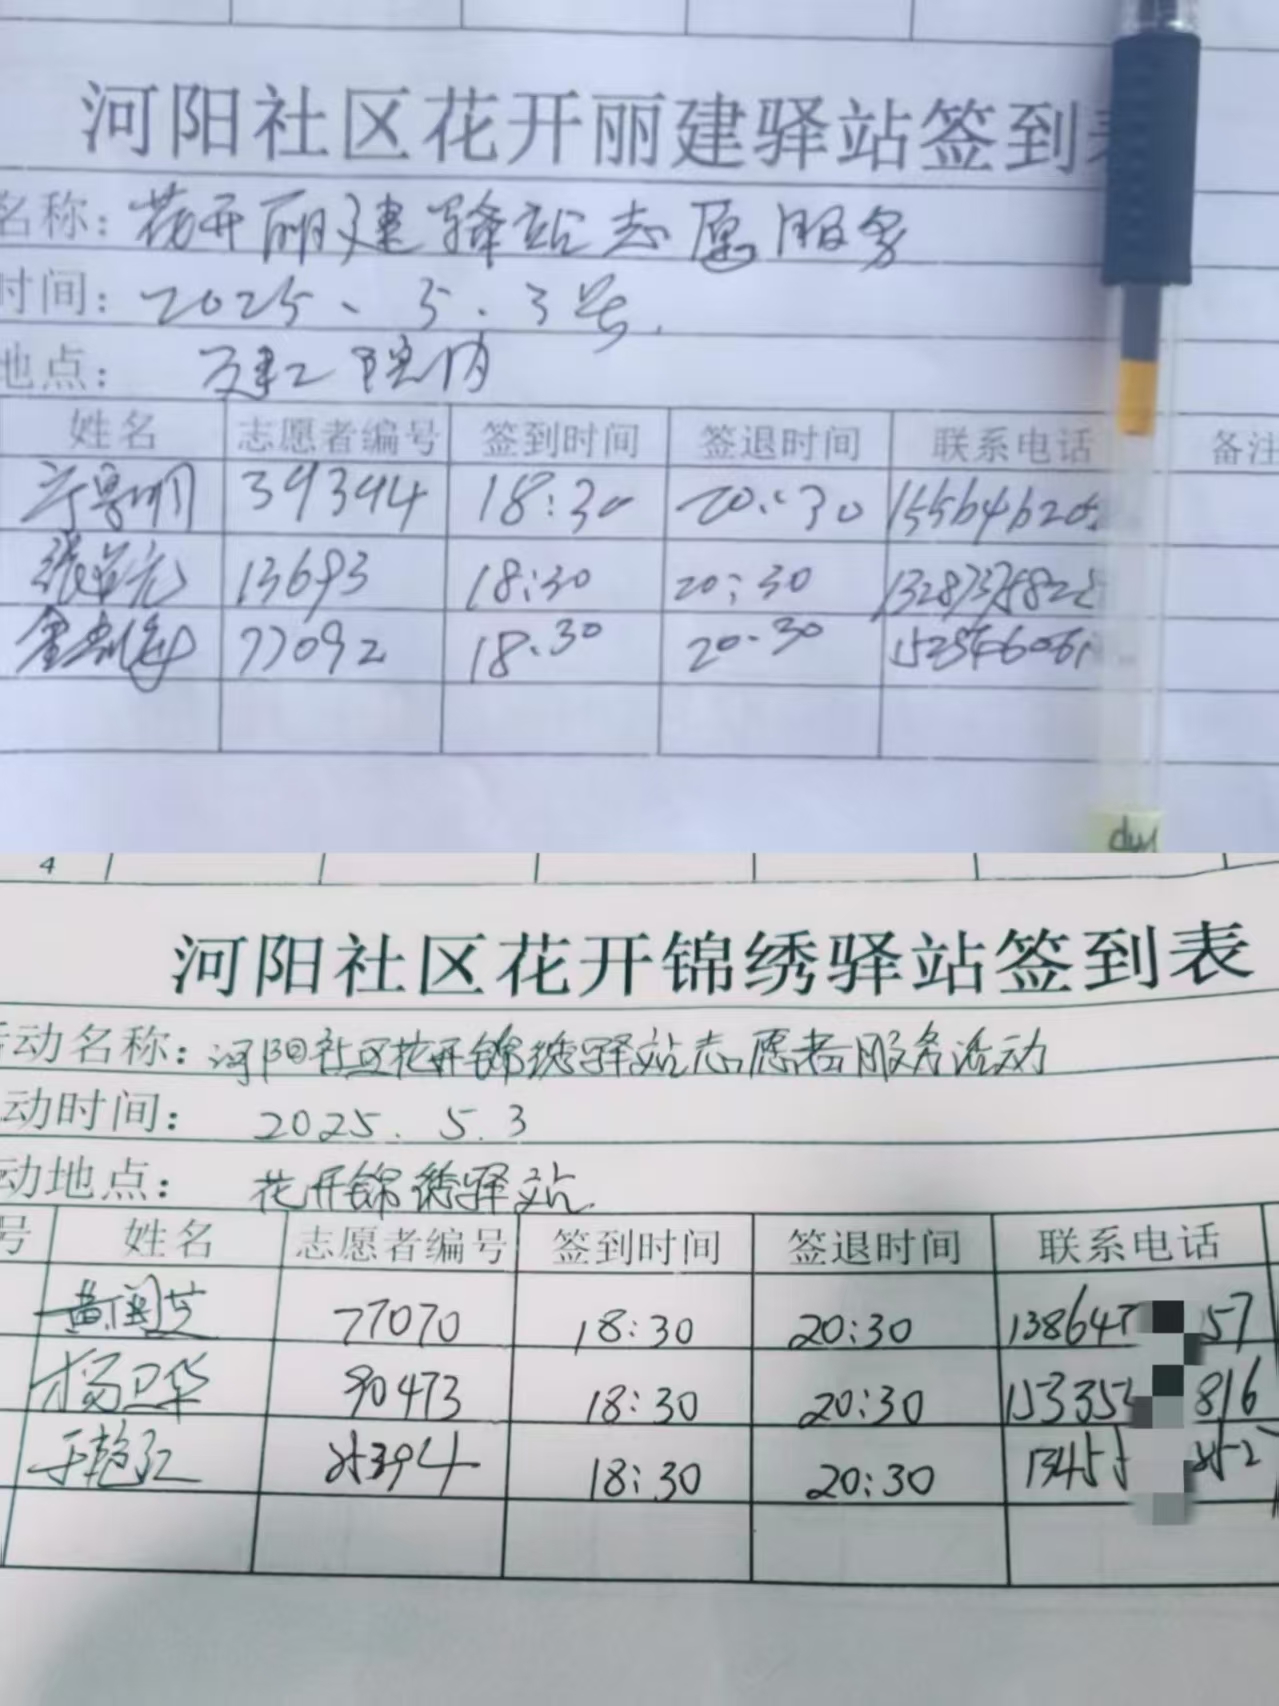 河阳社区花开丽建驿站签到表
名称：花开丽建驿站志愿服务
时间：2025、5.3号.
地点：
姓名 志愿者编号 签到时间 签退时间 联系电话 备注
39394 18:30 20:30
13693 18:30 20:30
77092 18.30 20.30
4
河阳社区花开锦绣驿站签到表
活动名称：河阳社区花开锦绣驿站志愿者服务活动
动时间：2025.5.3
动地点：花开锦绣驿站.
号 姓名 志愿者编号 签到时间 签退时间 联系电话
黄闺芝 77070 18:30 20:30 138647 57
杨卫华 90473 18:30 20:30 15335 816
于艳红 18:30 20:30